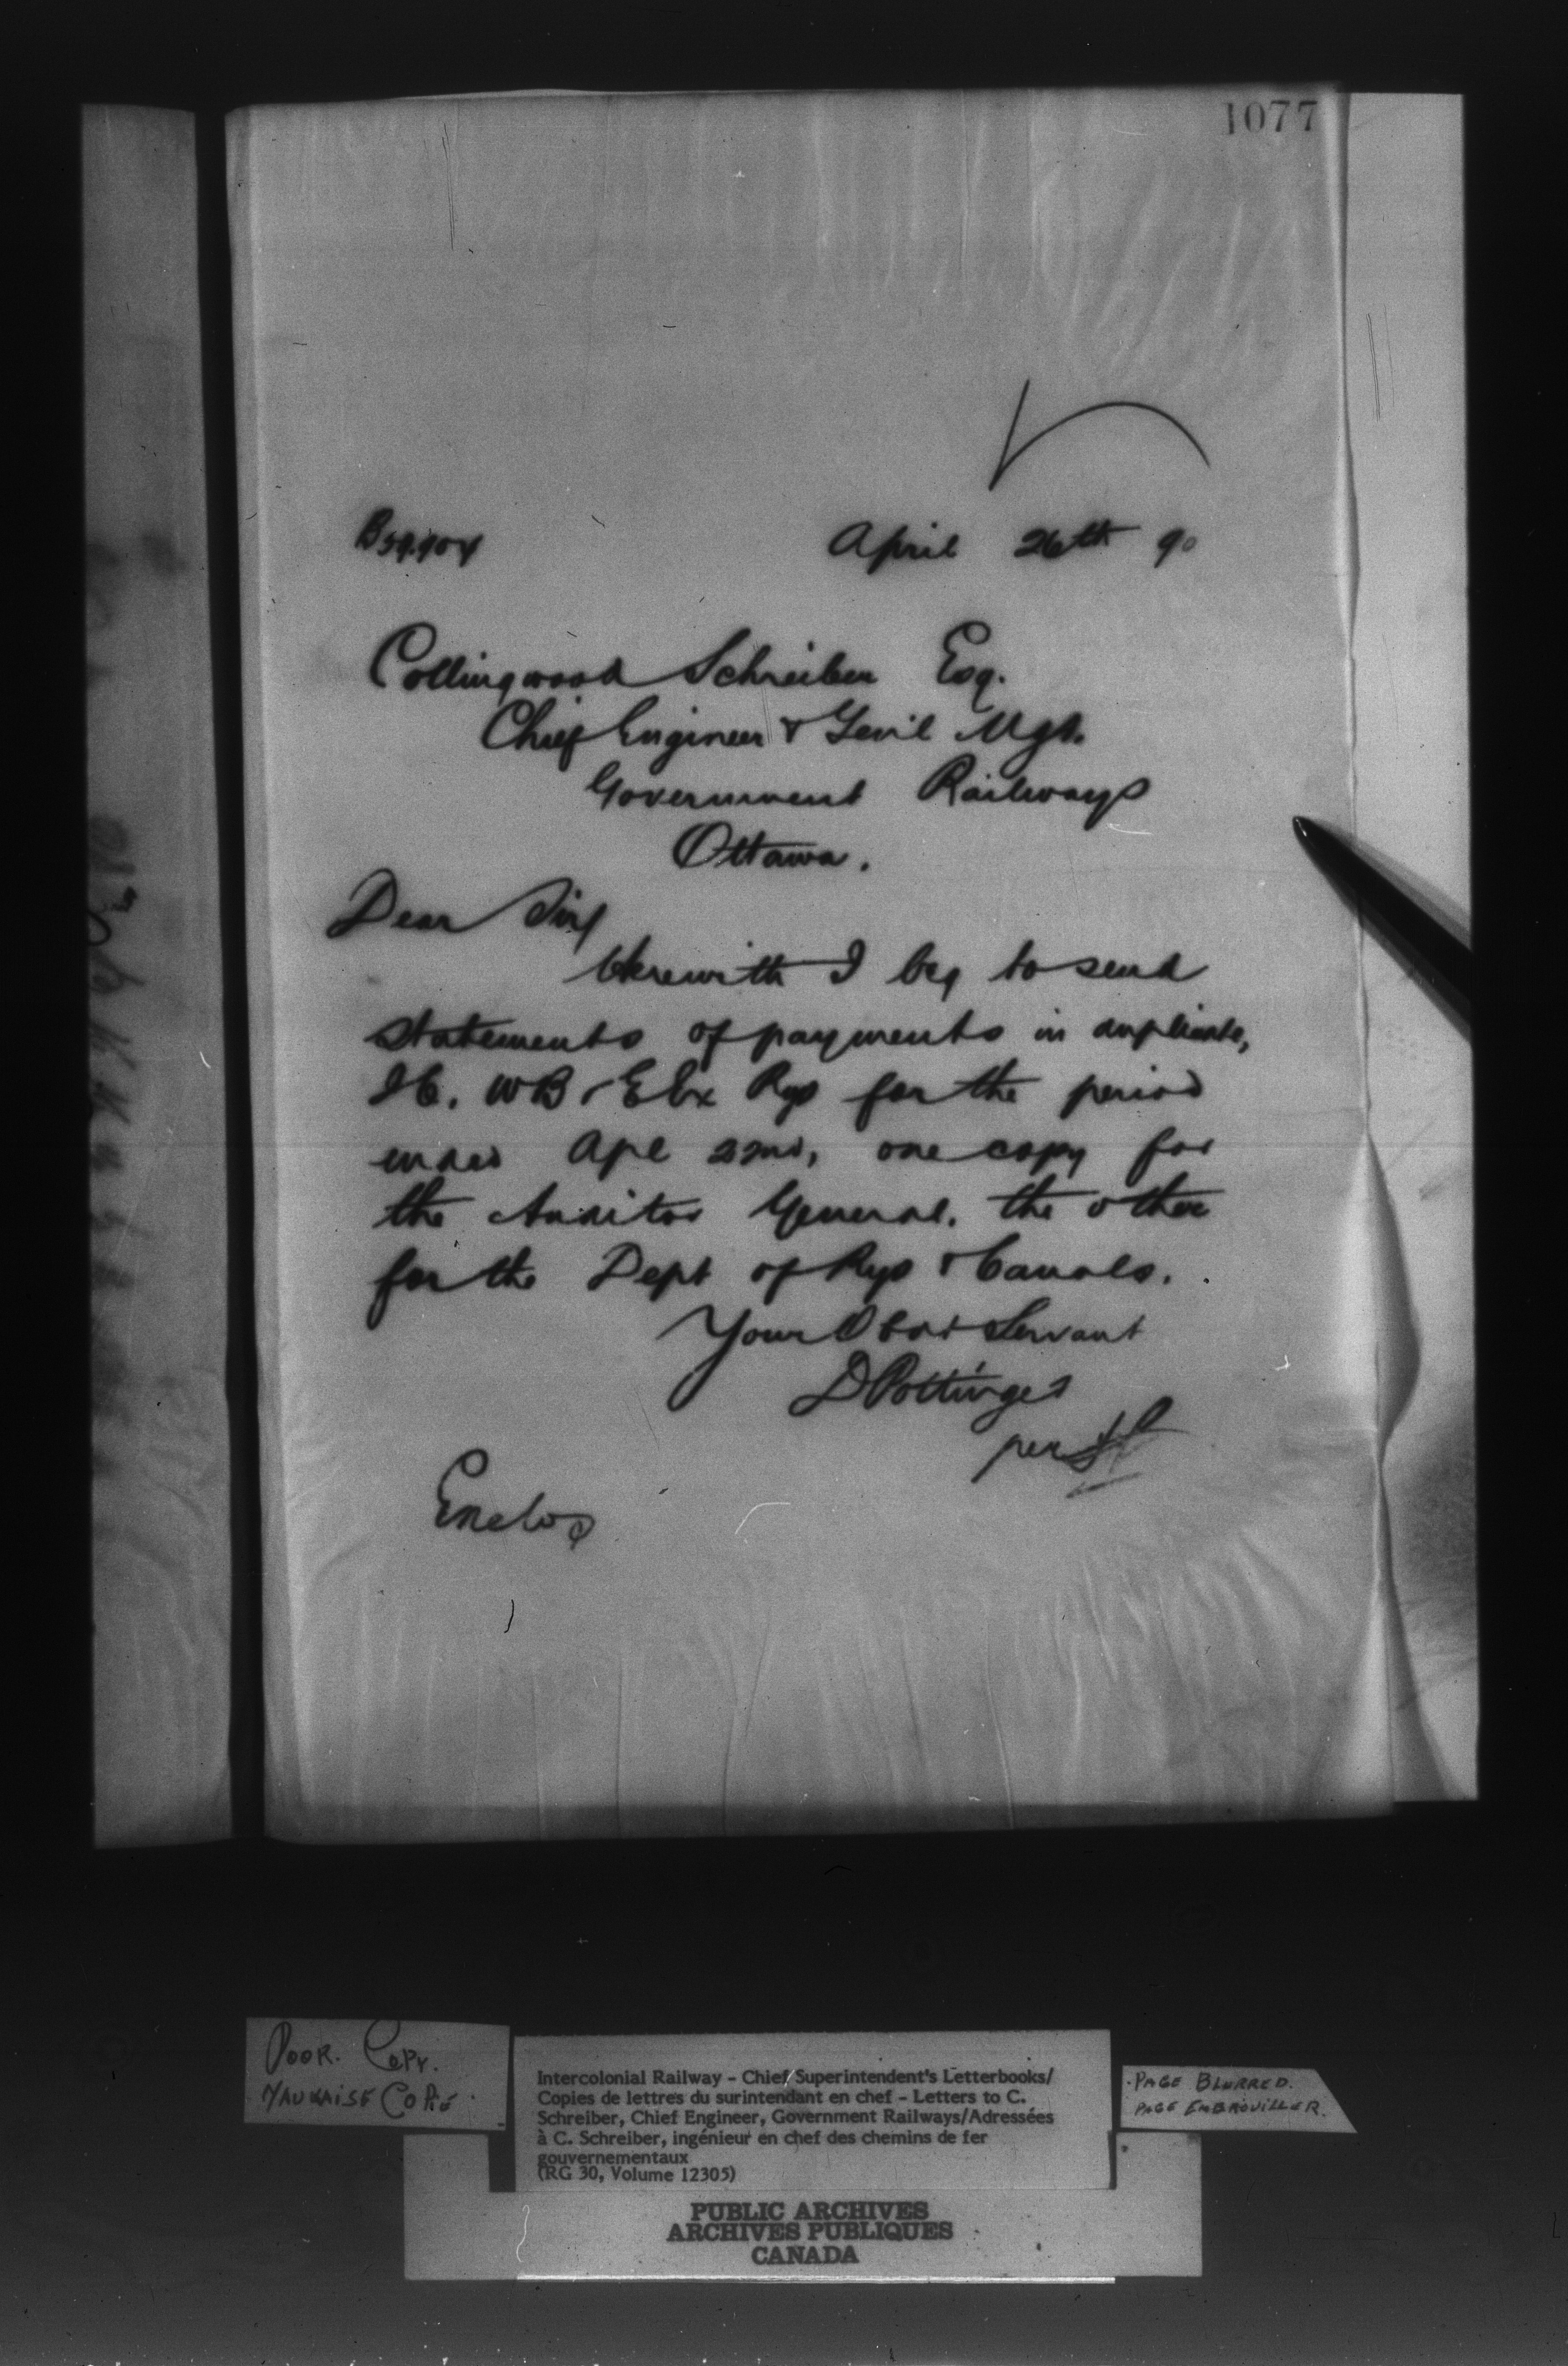 1077
April 26th 90
Collingwood Schreiber Esq.
Chief Engineer & Genl Mgr.
Government Railways
Ottawa.
Dear Sir,
Herewith I beg to send
statements of payments in duplicate,
IC. WB & Ebx Rys for the period
ended Apl 22nd, one copy for
the Auditor General, the other
for the Dept of Rys & Canals.
Your Obdt Servant
D Pottinger
per
Enclos
POOR. COPY.
MAUVAISE COPIE.
Intercolonial Railway - Chief Superintendent's Letterbooks/
Copies de lettres du surintendant en chef - Letters to C.
Schreiber, Chief Engineer, Government Railways/Adressées
à C. Schreiber, ingénieur en chef des chemins de fer
gouvernementaux
(RG 30, Volume 12305)
PAGE BLURRED.
PAGE EMBROUILLER.
PUBLIC ARCHIVES
ARCHIVES PUBLIQUES
CANADA